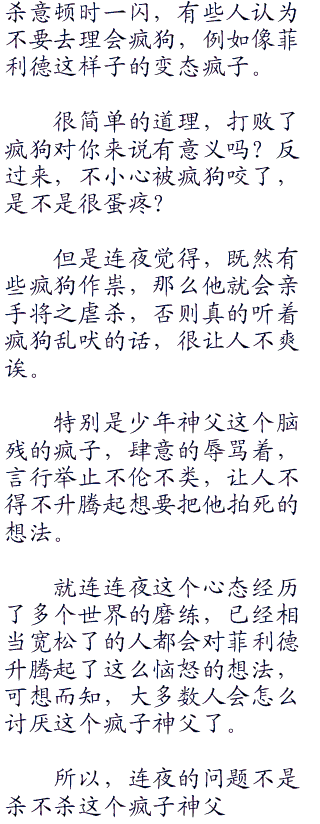 杀意顿时一闪，有些人认为
不要去理会疯狗，例如像菲
利德这样子的变态疯子。
很简单的道理，打败了
疯狗对你来说有意义吗？反
过来，不小心被疯狗咬了，
是不是很蛋疼？
但是连夜觉得，既然有
些疯狗作祟，那么他就会亲
手将之虐杀，否则真的听着
疯狗乱吠的话，很让人不爽
诶。
特别是少年神父这个脑
残的疯子，肆意的辱骂着，
言行举止不伦不类，让人不
得不升腾起想要把他拍死的
想法。
就连连夜这个心态经历
了多个世界的磨练，已经相
当宽松了的人都会对菲利德
升腾起了这么恼怒的想法，
可想而知，大多数人会怎么
讨厌这个疯子神父了。
所以，连夜的问题不是
杀不杀这个疯子神父